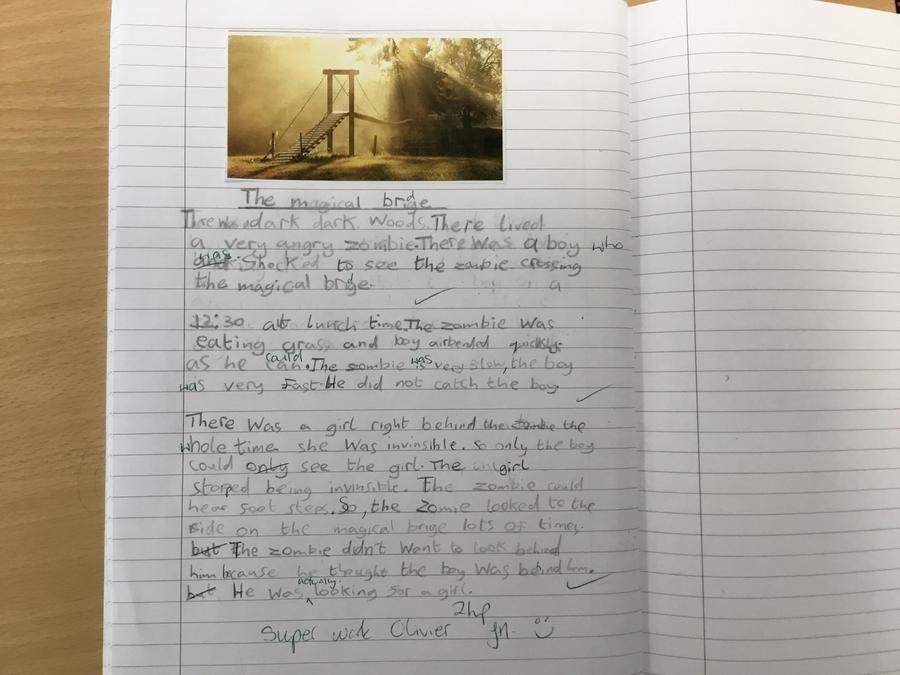 The magical bridge
There was dark dark Woods. There lived
a very angry zombie. There was a boy who
was shocked to see the zombie crossing
the magical bridge.
12:30 at lunch time. The zombie was
eating grass and boy airbended quickly
as he could. The zombie was very slow, the boy
was very Fast. He did not catch the boy.
There was a girl right behind the zombie the
whole time she was invinsible. So only the boy
could only see the girl. The girl
stopped being invinsible. The zombie could
hear foot steps. So, the zomie looked to the
side on the magical brige lots of times.
but The zombie didn't want to look behind
him because he thought the boy was behind him.
but He was actually looking for a girl.
2hp
Super work Olivier